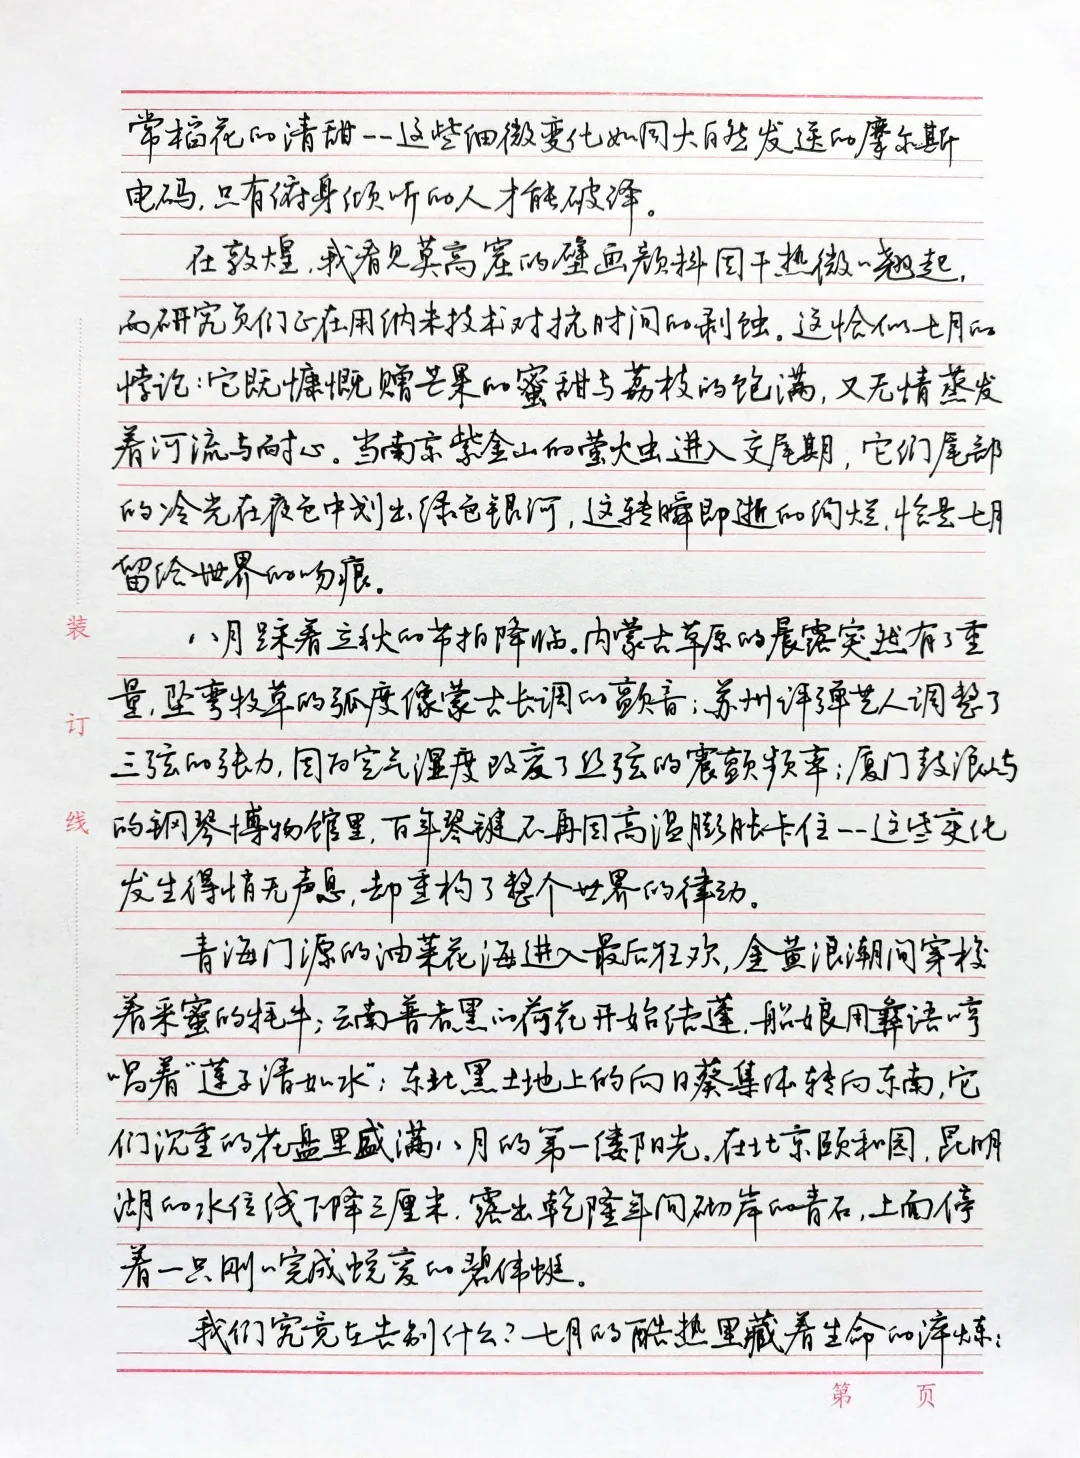 常稻花的清甜--这些细微变化如同大自然发送的摩尔斯
电码,只有俯身倾听的人才能破译。
在敦煌,我看见莫高窟的壁画颜料因干热微微翘起,
而研究员们正在用纳米技术对抗时间的剥蚀。这恰似七月的
悖论:它既慷慨赠芒果的蜜甜与荔枝的饱满,又无情蒸发
着河流与耐心。当南京紫金山的萤火虫进入交尾期,它们尾部
的冷光在夜色中划出绿色银河,这转瞬即逝的绚烂,恰是七月
留给世界的吻痕。
八月踩着立秋的节拍降临。内蒙古草原的晨露突然有了重
量,坠弯牧草的弧度像蒙古长调的颤音;苏州评弹艺人调整了
三弦的张力,因为空气湿度改变了丝弦的震颤频率;厦门鼓浪屿
的钢琴博物馆里,百年琴键不再因高温膨胀卡住--这些变化
发生得悄无声息,却重构了整个世界的律动。
青海门源的油菜花海进入最后狂欢,金黄浪潮间穿梭
着采蜜的牦牛;云南普者黑的荷花开始结蓬,船娘用彝语哼
唱着"莲子清如水";东北黑土地上的向日葵集体转向东南,它
们沉重的花盘里盛满八月的第一缕阳光。在北京颐和园,昆明
湖的水位线下降三厘米,露出乾隆年间砌岸的青石,上面停
着一只刚刚完成蜕变的碧伟蜓。
我们究竟在告别什么?七月的酷热里藏着生命的淬炼:
装
订
线
第 页